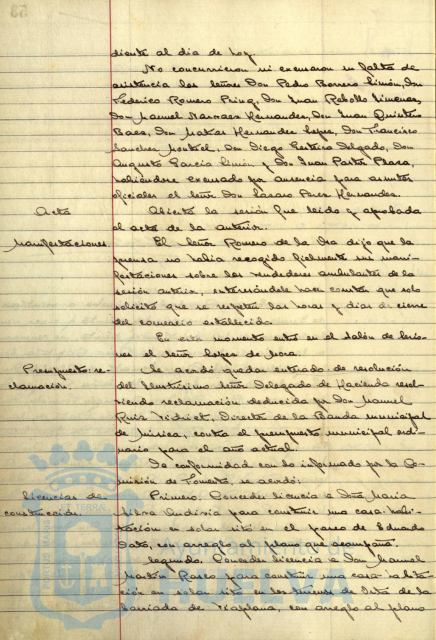 diente al día de hoy.
No concurrieron ni excusaron su falta de
asistencia los señores Don Pedro Borrero Limón, Don
Federico Romero Don Juan Rebollo Jimenez,
Don Manuel Narvaez Hernandez, Don Juan Quintero
Baez, Don Matias Hernandez Lopez, Don Francisco
Sanchez Don Diego Delgado, Don
Augusto Garcia Limón y Don Juan Pastor
habiéndose excusado por ausencia para asuntos
oficiales el señor Don Lazaro Perez Hernandez.
Acta
Abierta la sesión fue leida y aprobada
el acta de la anterior.
Manifestaciones.
El señor Romero de la Osa dijo que la
prensa no habia recogido fielmente sus mani-
festaciones sobre los vendedores ambulantes de la
sesión anterior, interesándole hacer constar que solo
solicitó que se respeten las horas y dias de cierre
del comercio establecido.
En este momento entra en el salón de sesio-
nes el señor Lopez de Mora.
Presupuesto: re-
clamación.
Se acordó quedar enterado de resolución
del Ilustrísimo señor Delegado de Hacienda resol-
viendo reclamación deducida por Don Manuel
Ruiz Director de la Banda municipal
de música, contra el presupuesto municipal ordi-
nario para el año actual.
De conformidad con lo informado por la Co-
misión de Fomento, se acordó:
Licencias de
construcción.
Primero. Conceder licencia a Doña Maria
para construir una casa-habi-
tación en solar sito en el paseo de Eduardo
Dato, con arreglo al plano que acompaña.
Segundo. Conceder licencia a Don Manuel
Martin Rasco para construir una casa-habita-
ción en solar sito en los de la
barriada de Viaplana, con arreglo al plano